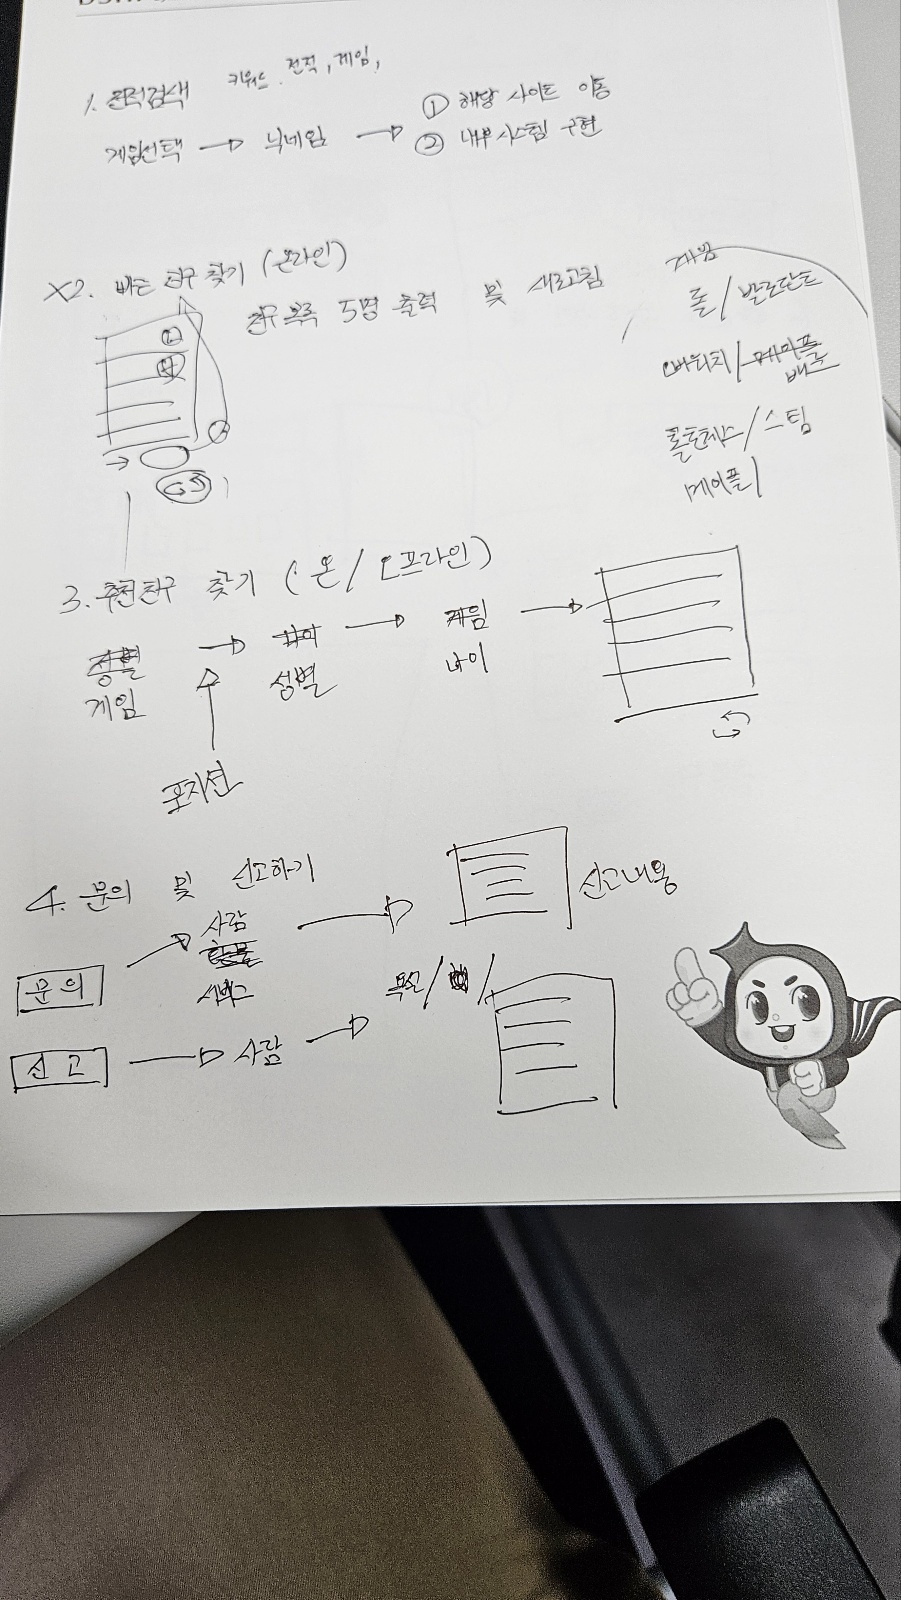 1. 전적검색 키워드. 전적, 게임,
게임선택 → 닉네임 → ① 해당 사이트 이동
② 내부시스템 구현
X2. 빠른 친구 찾기 (온라인)
친구 목록 5명 출력 및 새로고침
게임
롤 / 발로란트
오버워치 /
배그
롤토체스 / 스팀
메이플 /
3. 추천친구 찾기 (온 / 오프라인)
성별 → → 게임 →
게임 성별 나이
포지션
4. 문의 및 신고하기
문의 → 사람 → 신고내용
서비스
신고 → 사람 → 욕설 / /